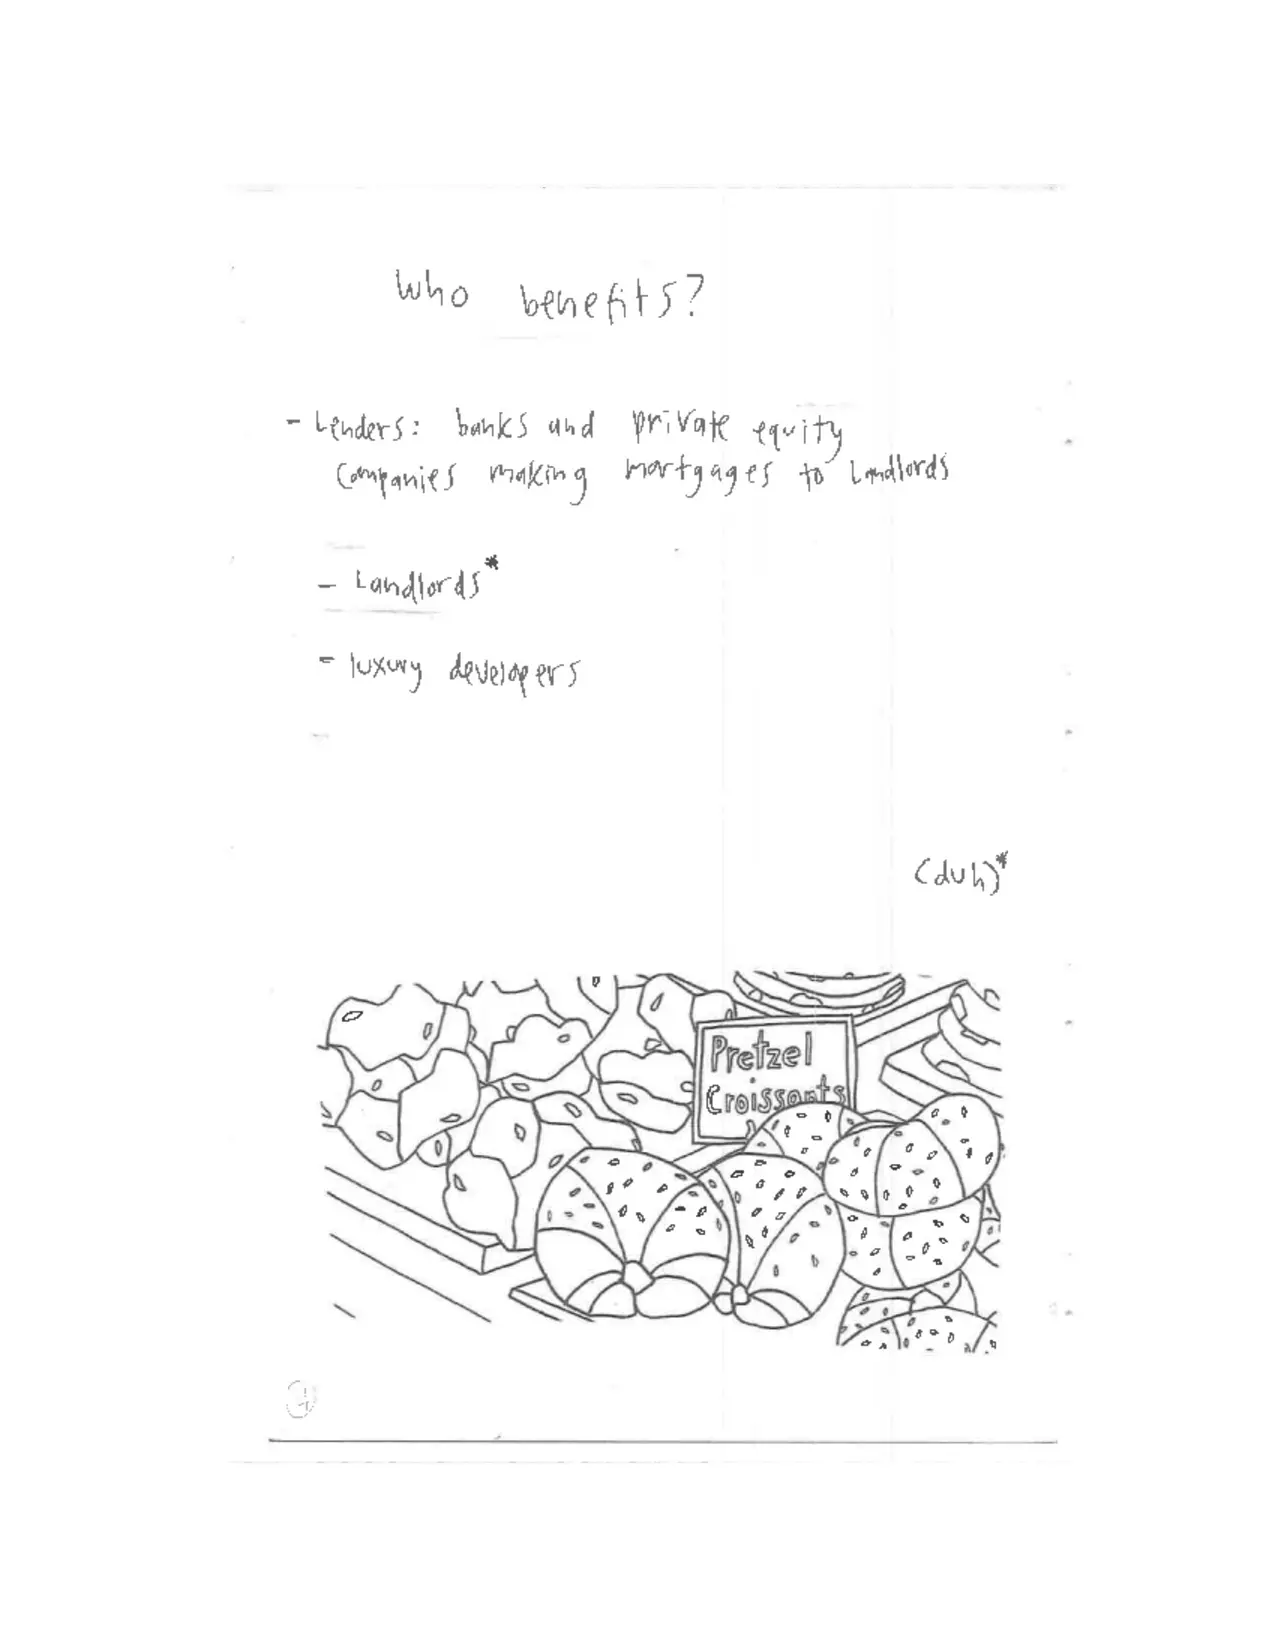 Who benefits?
- Lenders: banks and private equity
Companies making mortgages to Landlords
- Landlords*
- luxury developers
(duh)*
Pretzel
Croissants